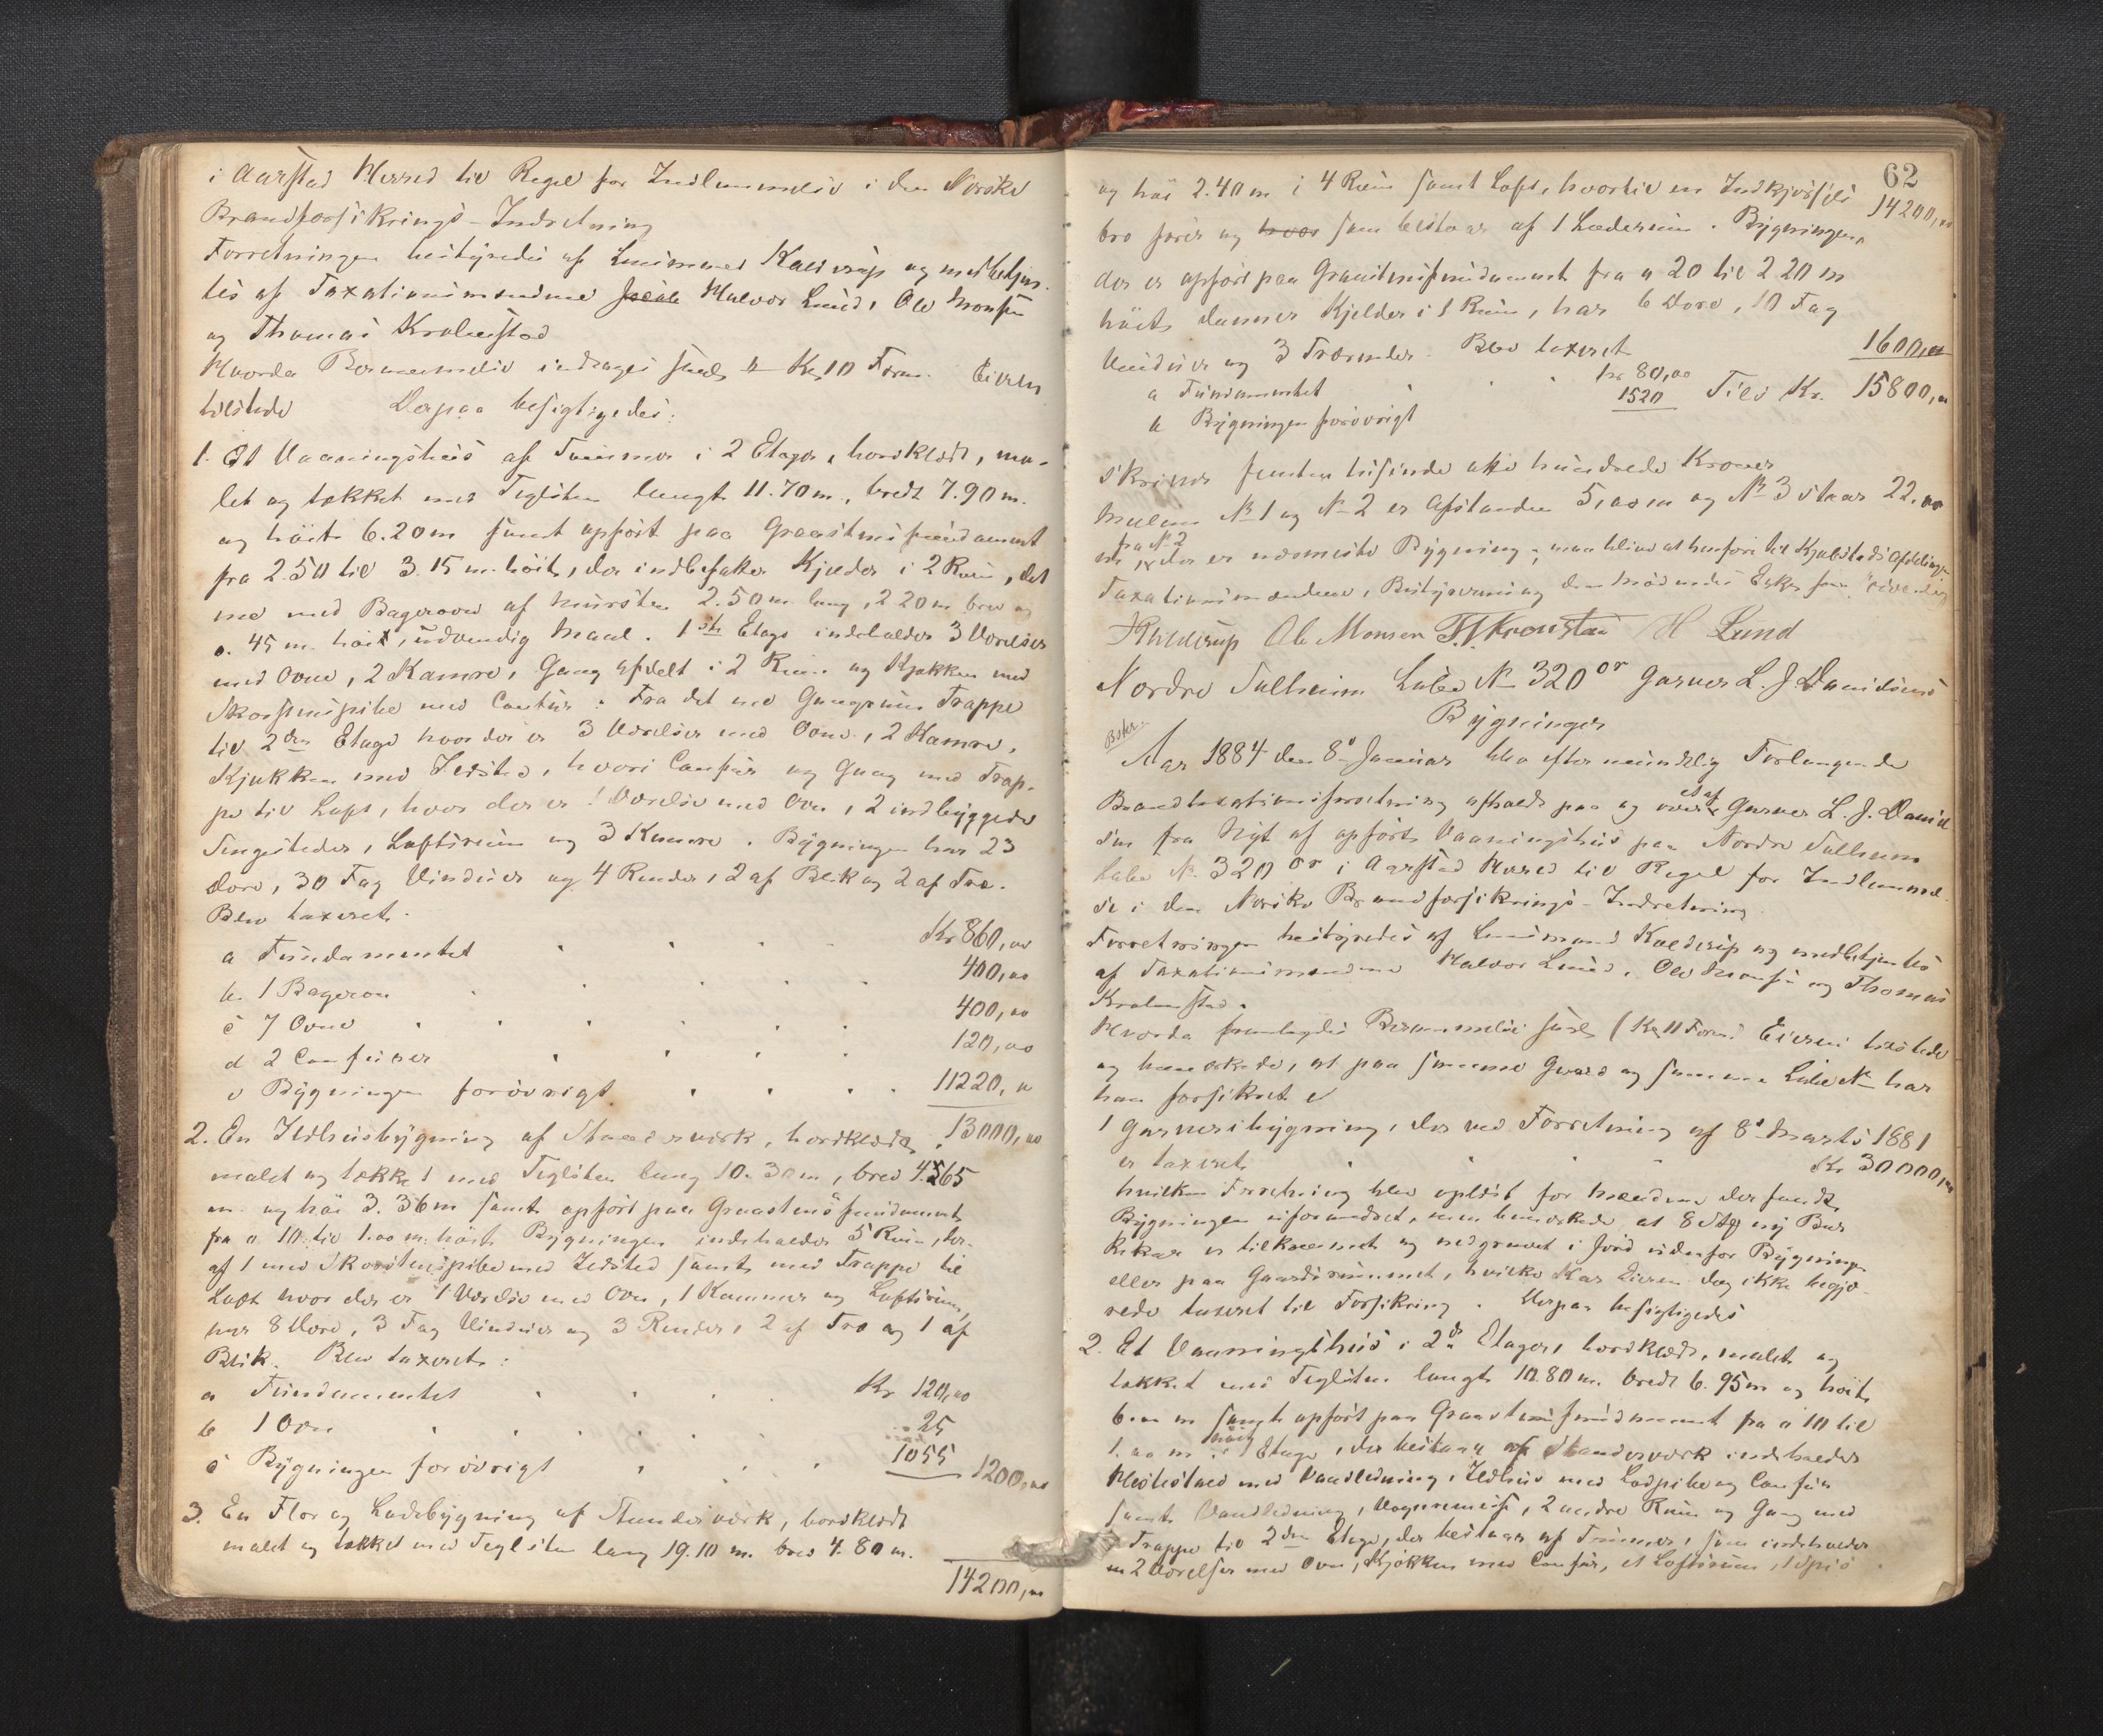 i Aarstad Herred til Regel for Indlemmelse i den Norske
Brandforsikrings-Indretning
Forretningen bestyredes af Lensmand Kaldrup og medbetjen-
tes af Taxationsmændene Halvor Lund, Ole Monsen
og Thomas Kronenstad
Hvorda Berammelse indtages Kr 10 Form. Eieren
tilstede Derpaa besigtigedes:
1. Et Vaaningshus af Tømmer i 2 Etager, bordklædt, ma-
let og tækket med Teglsten langt 11.70 m., bredt 7.90 m.
og höit 6.20 m samt opfört paa Graastensfundament
fra 2.50 til 3.15 m. höit, der indbefatter Kjelder i 2 Rum, det
ene med Bagerovn af Mursten 2.50 m. lang, 2 20 m bred og
o. 45 m. höit, udvendig Maal. 1ste Etage indeholder 3 Værelser
med Ovne, 2 Kamre, Gang afdelt i 2 Rum og Kjøkken med
Skorstenspibe med Comfur. Fra det ene Gangrum Trappe
til 2den Etage hvor der er 3 Værelser med Ovne, 2 Kamre,
Kjøkken med Ildsted, hvori Comfur og Gang med Trap-
pe til Loft, hvor der er 1 Værelse med Ovn, 2 indbyggede
Sengesteder, Loftsrum og 3 Kamre. Bygningen har 23
Döre, 30 Fag Vinduer og 4 Render, 2 af Blik og 2 af Træ.
Blev taxeret.
a Fundamentet Kr 860,00
b. 1 Bagerovn 400,00
c 7 Ovne 400,00
d 2 Comfurer 120,00
e Bygningen forövrigt 11220,00
13000,00
2. En Ildhusbygning af Stænderværk, bordklædt,
malet og tækket med Teglsten lang 10.30 m, bred 4.565
m. og höi 3.36 m samt opfört paa Graastensfundament
fra o 10 til 1.00 m. höit. Bygningen indeholder 5 Rum, der-
af 1 med Skorstenspibe med Ildsted samt med Trappe til
Loft hvor der er 1 Værelse med Ovn, 1 Kammer og Loftsrum,
har 8 Döre, 3 Fag Vinduer og 3 Render, 2 af Træ og 1 af
Blik. Blev taxeret:
a Fundamentet Kr 120,00
b 1 Ovn 25
c Bygningen forövrigt 1055 1200,00
3. En Flor og Ladebygning af Stenderværk, bordklædt
malet og tækket med Teglsten lang 19.10 m. bred 4.80 m.
14200,00
62
og höi 2.40 m i 4 Rum samt Loft, hvortil en Indkjörsels 14200,00
bro förer og som bestaar af 1 Laderum. Bygningen,
der er opfört paa Graastensfundament fra o 20 til 2 20 m
höit, danner Kjelder i 1 Rum, har 6 Döre, 10 Fag
Vinduer og 3 Trærender. Blev taxeret 1600,00
a Fundamentet Kr 80,00
b Bygningen forövrigt 1520 Tils Kr. 15800,00
skriver femten tusinde otte hundrede Kroner
Mellem No 1 og No 2 er Afstanden 5,00 m og No 3 staar 22.00
fra No 2
m, der er nærmeste Bygning;
Taxationsmændene, Bestyreren og
Kaldrup Ole Monsen H Lund
Nordre Solheim Løbe No 320 or Garver L. J Danielsens
Bygninger
Aar 1884 den 8de Januar blev efter mundtlig Forlangende
Brandtaxationsforretning afholdt paa og over et af Garver L. J. Daniel
sen fra Nyt af opfört Vaaningshus paa Nordre Solheim
Løbe No 320 or i Aarstad Herred til Regel for Indlemmel-
se i den Norske Brandforsikrings-Indretning.
Forretningen bestyredes af Lensmand Kaldrup og medbetjentes
af Taxationsmændene Halvor Lund, Ole Monsen og Thomas
Kronenstad.
Hvorda fremlagdes Berammelse (Kr 11 Form) Eieren tilstede
og bemærkede, at paa samme Gaard og samme Løbe No har
han forsikret
1 Garveribygning, der ved Forretning af 8de Marts 1881
er taxeret Kr 30000,00
hvilken Forretning blev oplæst for Mændene der fandt
Bygningen uforandret, men bemærkede at 8 Stk ny Bar
kekar er tilkommet og nedgravet i Jord udenfor Bygningen
eller paa Gaardsrummet, hvilke Kar Eieren dog ikke begjæ-
rede taxeret til Forsikring. Derpaa besigtigedes
2. Et Vaaningshus i 2de Etager, bordklædt, malet og
tækket med Teglsten langt 10.80 m. bredt 6.95 m og höit
6.00 m samt opfört paa Graastensfundament fra o 10 til
1.00 m. höit Etage, der bestaar af Stenderværk indeholder
Hestestald med Vandledning, Ildhus med Ladpibe og Comfur
samt Vandledning, Vognremise, 2 andre Rum og Gang med
Trappe til 2den Etage, der bestaar af Tømmer, som indeholder
2 Værelser med Ovn, Kjøkken med Comfur, et Loftsrum, 1 Spis